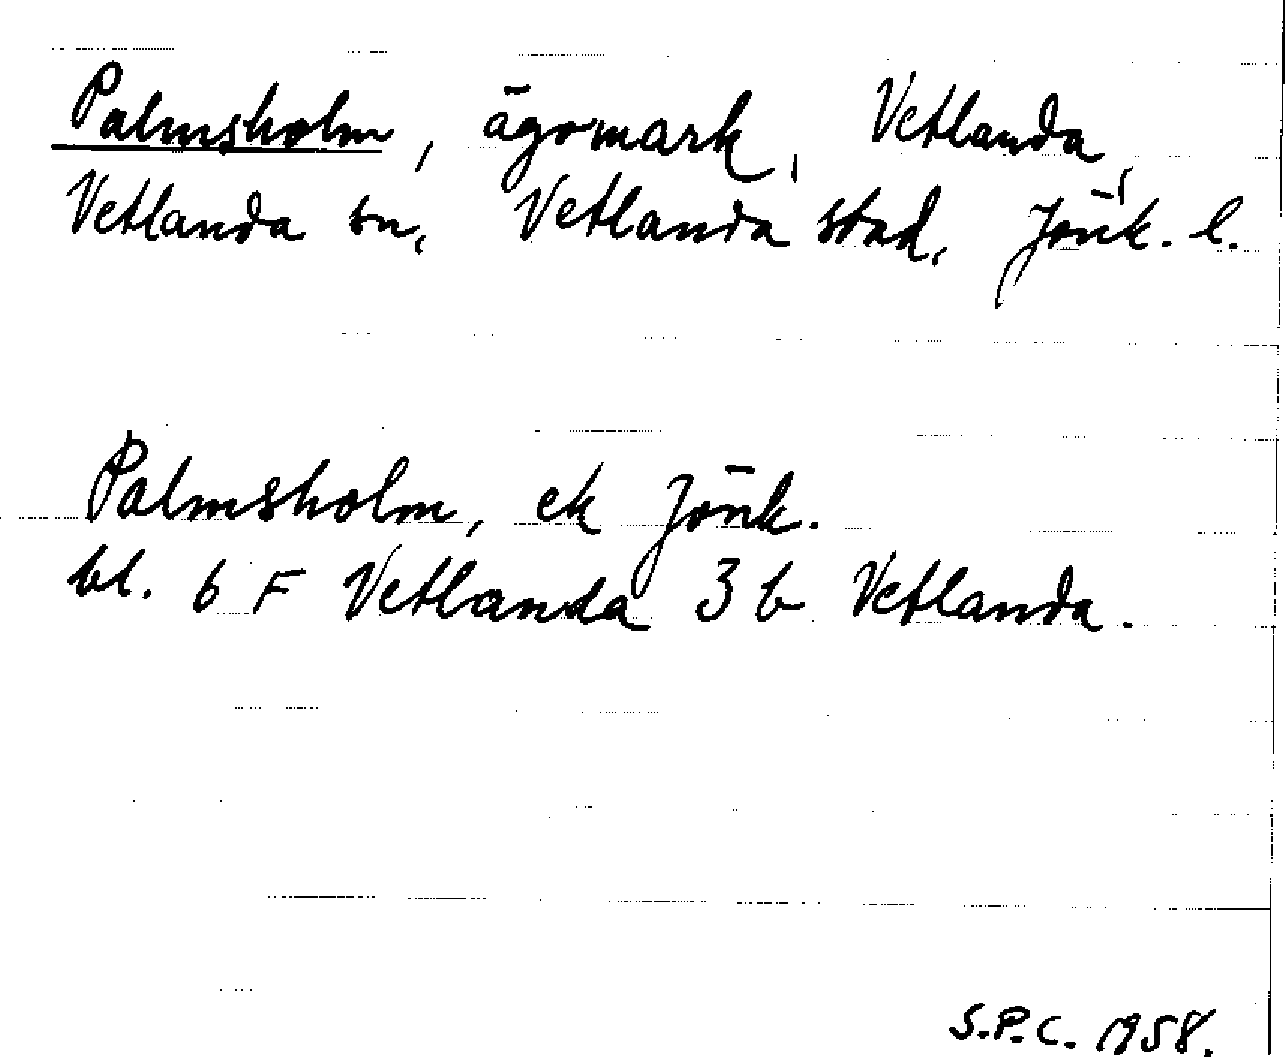 Palmsholm, ägomark, Vetlanda,
Vetlanda sn, Vetlanda stad, Jönk. l.
Palmsholm, ek Jönk.
bl. 6 F Vetlanda 3 b Vetlanda.
S.P.C. 1958.